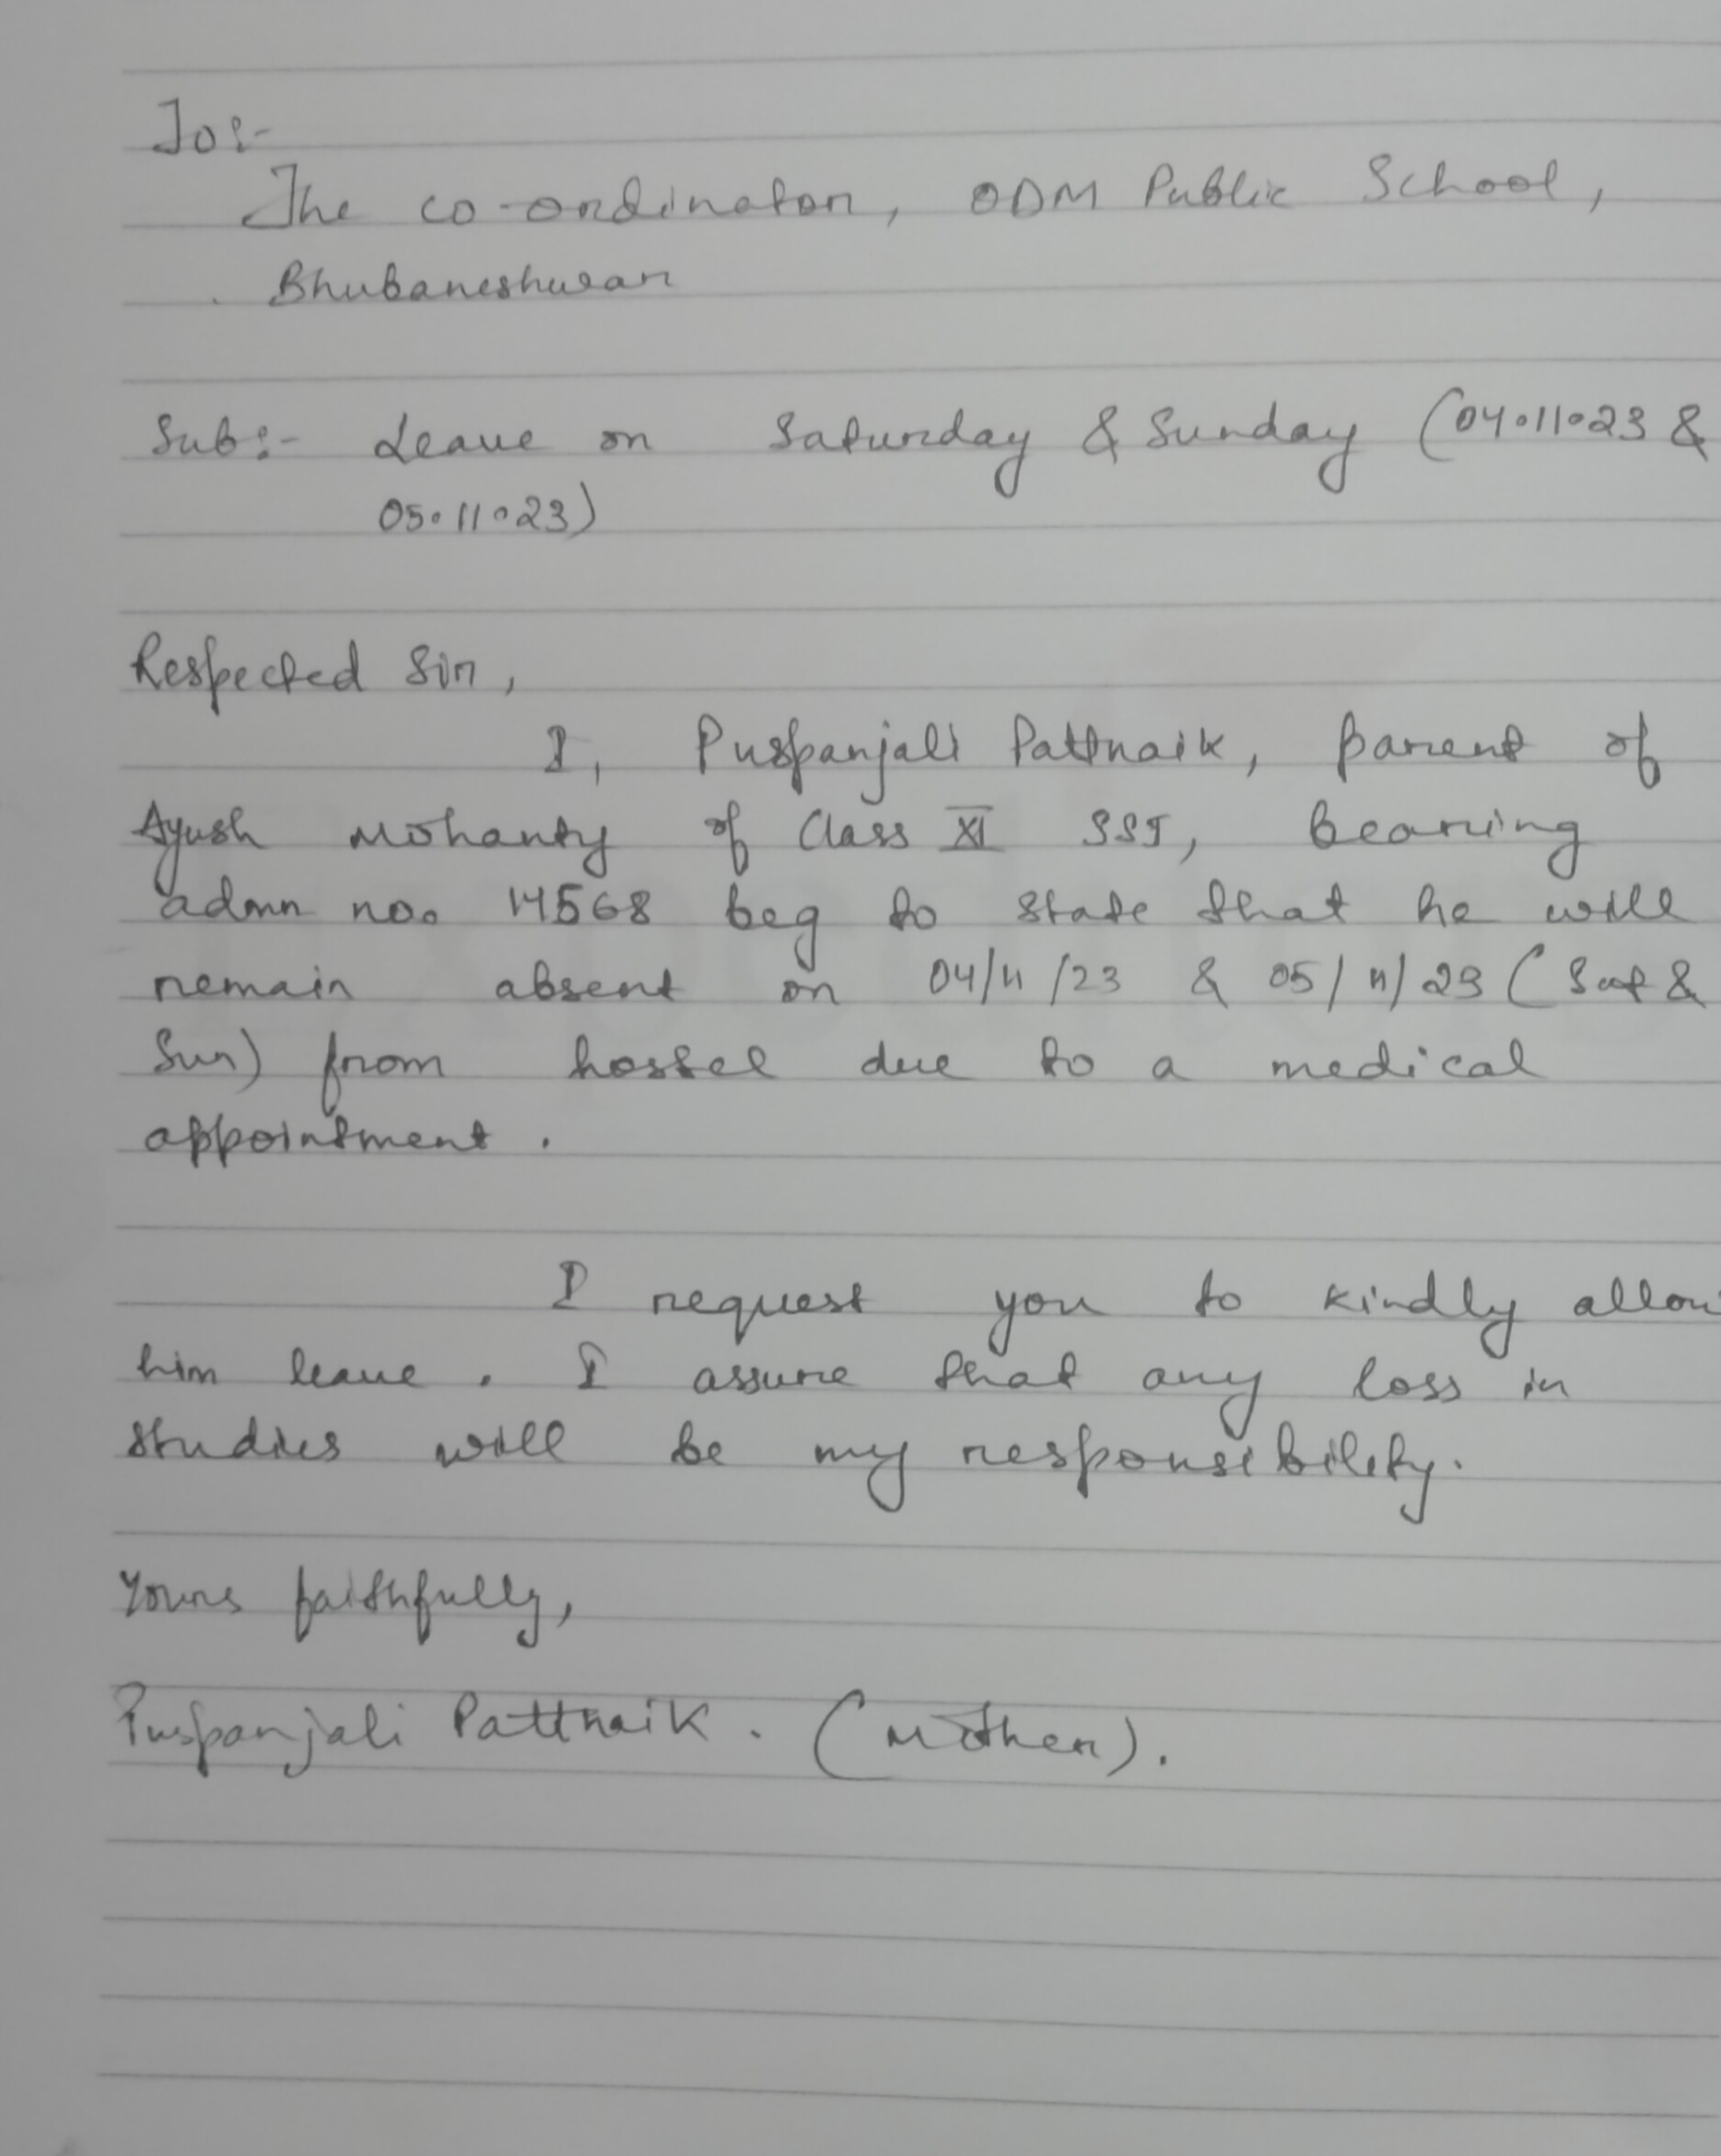 To:-
The co-ordinator, ODM Public School,
Bhubaneshwar
Sub:- Leave on Saturday & Sunday (04.11.23 &
05.11.23)
Respected Sir,
I, Puspanjali Pattnaik, parent of
Ayush Mohanty of Class XI SSJ, bearing
admn no. 14568 beg to state that he will
remain absent on 04/11/23 & 05/11/23 (Sat &
Sun) from hostel due to a medical
appointment.
I request you to kindly allow
him leave. I assure that any loss in
studies will be my responsibility.
Yours faithfully,
Puspanjali Pattnaik. (Mother).